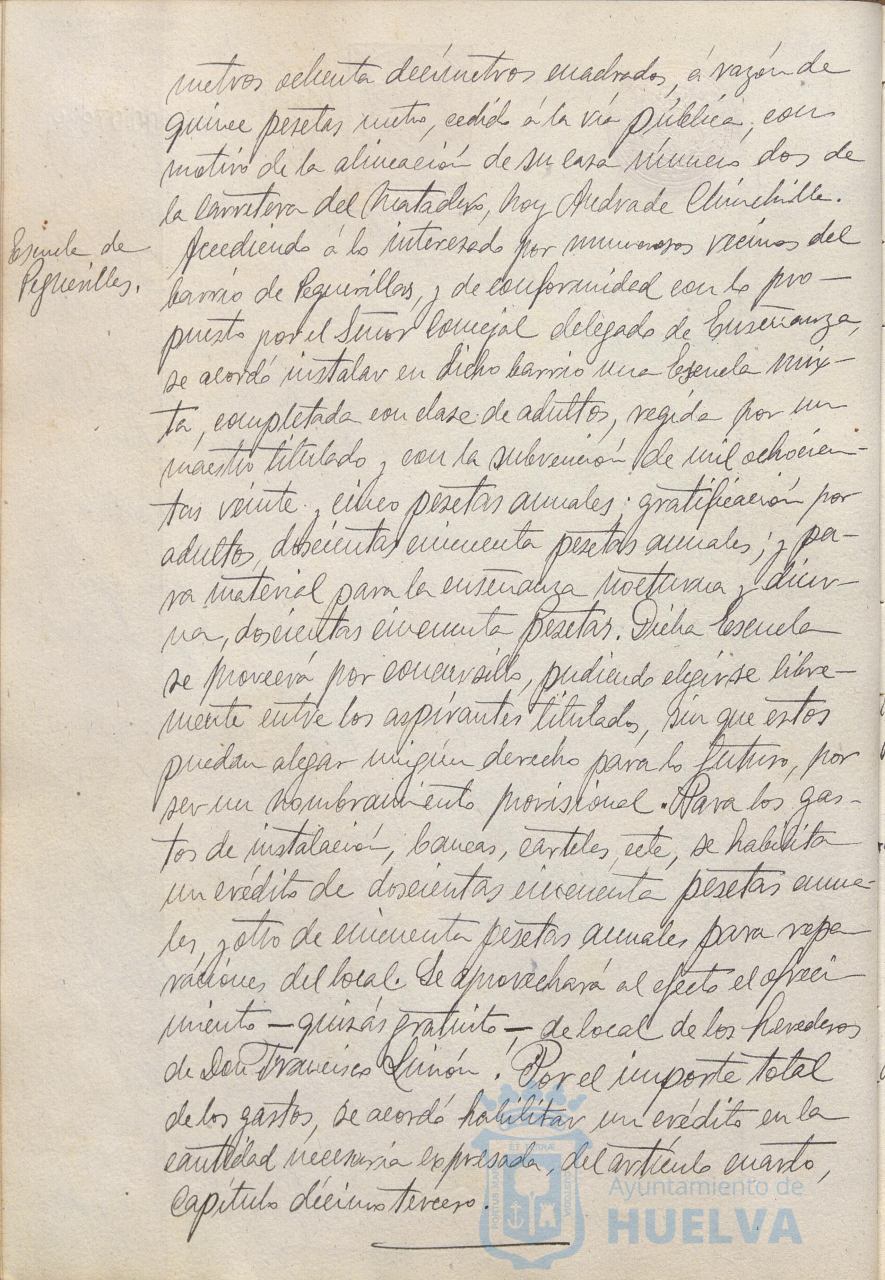 metros ochenta decímetros cuadrados, á razón de
quince pesetas metro, cedido á la vía pública, con
motivo de la alineación de su casa número dos de
la Carretera del Matadero, hoy Andrade Chinchilla.
Escuela de
Peguerillas.
Accediendo á lo interesado por numerosos vecinos del
barrio de Peguerillas, y de conformidad con lo pro-
puesto por el Señor Concejal delegado de Enseñanza,
se acordó instalar en dicho barrio una Escuela mix-
ta, completada con clase de adultos, regida por un
maestro titulado y con la subvención de mil ochocien-
tas veinte y cinco pesetas anuales; gratificación por
adultos, doscientas cincuenta pesetas anuales; y pa-
ra material para la enseñanza nocturna y diur-
na, doscientas cincuenta pesetas. Dicha Escuela
se proveerá por concursillo, pudiendo elegirse libre-
mente entre los aspirantes titulados, sin que estos
puedan alegar ningún derecho para lo futuro, por
ser un nombramiento provisional. Para los gas-
tos de instalación, bancas, carteles, ecte, se habilita
un crédito de doscientas cincuenta pesetas anua-
les, y otro de cincuenta pesetas anuales para repa
raciones del local. Se aprovechará al efecto el ofreci
miento - quizás gratuito -, de local de los herederos
de Don Francisco Limón. Por el importe total
de los gastos, se acordó habilitar un crédito en la
cantidad necesaria expresada, del artículo cuarto,
Capítulo décimo tercero.
Ayuntamiento de
HUELVA